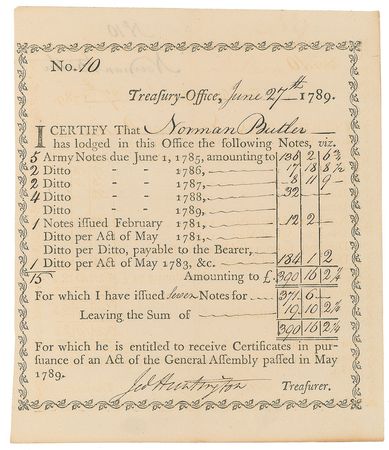 No. 10
Treasury-Office, June 27th 1789.
I CERTIFY That Norman Butler
has lodged in this Office the following Notes, viz.
5 Army Notes due June 1, 1785, amounting to 138 2 6¾
2 Ditto " " 1786, 17 18 8½
2 Ditto " " 1787, 8 11 9
4 Ditto " " 1788, 32
Ditto " " 1789,
1 Notes issued February 1781, 12 2
Ditto per Act of May 1781,
Ditto per Ditto, payable to the Bearer,
1 Ditto per Act of May 1783, &c. 184 1 2
15 Amounting to £. 390 16 2¼
For which I have issued seven Notes for 371 6
Leaving the Sum of 19 10 2¼
390 16 2¼
For which he is entitled to receive Certificates in pur-
suance of an Act of the General Assembly passed in May
1789.
Jed Huntington Treasurer.